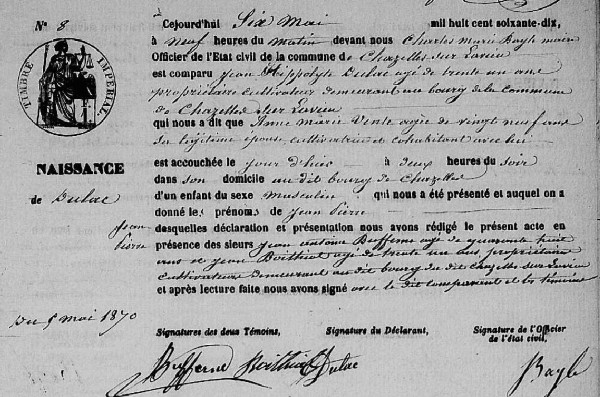 N° 8
TIMBRE IMPÉRIAL
NAISSANCE
de Dulac
Jean
Pierre
Du 5 mai 1870
Cejourd'hui Six Mai mil huit cent soixante-dix,
à neuf heures du Matin devant nous Charles Marie Bayle maire
Officier de l'Etat civil de la commune de Chazelles sur Lavieu
est comparu Jean Hippolyte Dulac agé de trente un ans
propriétaire cultivateur demeurant au bourg de la Commune
de Chazelles sur Lavieu
qui nous a dit que Anne Marie agée de vingt neuf ans
sa légitime épouse, cultivatrice et cohabitant avec lui
est accouchée le jour d'hier à deux heures du soir
dans son domicile au dit bourg de Chazelles
d'un enfant du sexe masculin qui nous a été présenté et auquel on a
donné les prénoms de Jean Pierre
desquelles déclaration et présentation nous avons rédigé le présent acte en
présence des sieurs Jean Antoine Bufferne agé de quarante huit
ans et Jean Boithiat agé de trente un ans, propriétaires
cultivateurs demeurant au dit bourg du dit Chazelles sur Lavieu
et après lecture faite nous avons signé avec le dit comparant et les témoins
Signatures des deux Témoins, Signature du Déclarant, Signature de l'Officier
de l'état civil,
Bufferne Boithiat Dulac Bayle